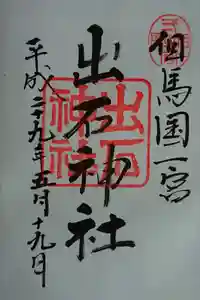 但馬国一宮
出石神社
出石
神社
平成二十九年五月十九日